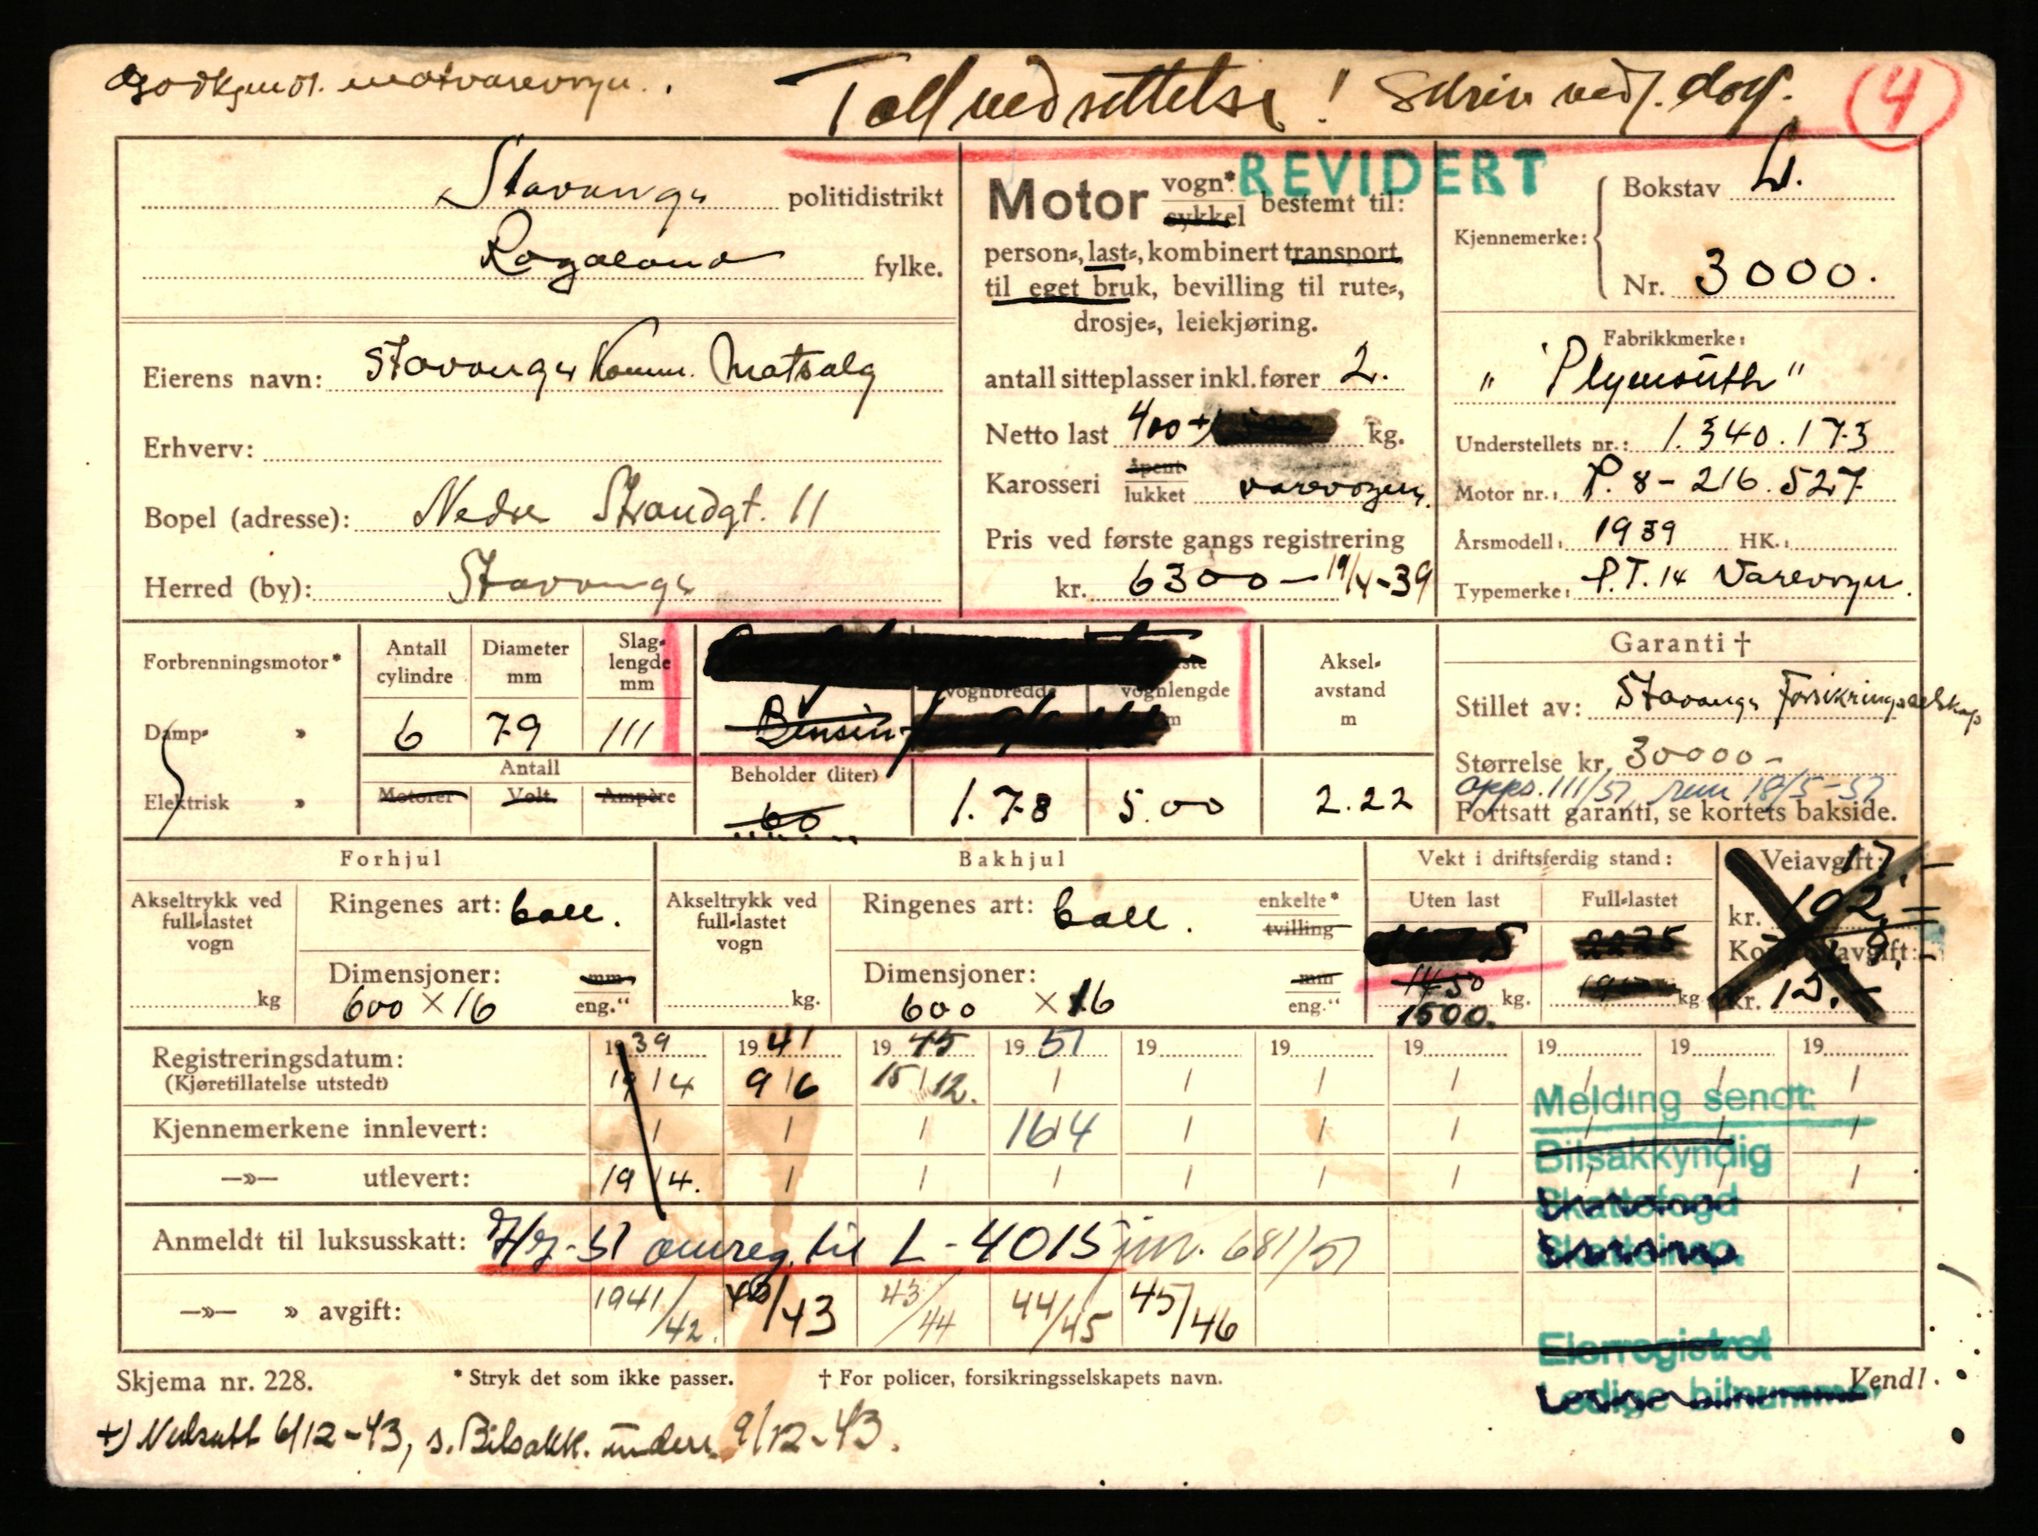 Godkjendt matvarevogn.
Tollnedsettelse! Skriv vedl. dog.
4
Stavanger politidistrikt
Rogaland fylke.
Eierens navn: Stavanger Komm. Matsalg
Erhverv:
Bopel (adresse): Nedre Strandgt. 11
Herred (by): Stavanger
REVIDERT
Motor vogn* sykkel bestemt til:
person-, last-, kombinert transport
til eget bruk, bevilling til rute-,
drosje-, leiekjøring.
antall sitteplasser inkl. fører 2.
Netto last 400 +) kg.
Karosseri åpent lukket varevogn.
Pris ved første gangs registrering
kr. 6300 — 19/4-39
Kjennemerke: Bokstav L.
Nr. 3000.
Fabrikkmerke:
"Plymouth"
Understellets nr.: 1.340.173
Motor nr.: P.8-216.527
Årsmodell: 1939 HK.:
Typemerke: P.T.14 Varevogn.
Forbrenningsmotor*
Damp- »
Elektrisk »
Antall cylindre
6
Diameter mm
79
Slag-lengde mm
111
Antall
Motorer Volt Ampère
Bensin
vognbredde
vognlengde
Beholder (liter)
60
1.78
5.00
Aksel-avstand m
2.22
Garanti †
Stillet av: Stavanger Forsikringsselskap
Størrelse kr. 30000-
opps. 111/51, rem 18/5-51
Fortsatt garanti, se kortets bakside.
Forhjul
Akseltrykk ved full-lastet vogn
kg
Ringenes art: ball.
Dimensjoner: mm
600 × 16 eng."
Bakhjul
Akseltrykk ved full-lastet vogn
kg.
Ringenes art: ball. enkelte* tvilling
Dimensjoner: mm
600 × 16 eng."
Vekt i driftsferdig stand:
Uten last
1450 kg.
1500.
Full-lastet
2225
kg
Veiavgift: 17.-
kr. 102,=
Kontrollavgift: 9.-
kr. 15.-
Registreringsdatum: 1939 1941 1945 1951 19 19 19 19 19 19
(Kjøretillatelse utstedt) 19/4 9/6 15/12. / / / / / / /
Kjennemerkene innlevert: / / / 16/4 / / / / / /
—»— utlevert: 19/4. / / / / / / / / /
Anmeldt til luksusskatt: omreg. til L-4015 jnr. 681/51
—»— » avgift: 1941/42. 42/43 43/44 44/45 45/46
Melding sendt:
Bilsakkyndig
Skattefogd
Eierregistret
Ledige bilnummer
Skjema nr. 228. * Stryk det som ikke passer. † For policer, forsikringsselskapets navn. Vend!
+) Nedsatt 6/12-43, s. Bilsakk. unders. 9/12-43.